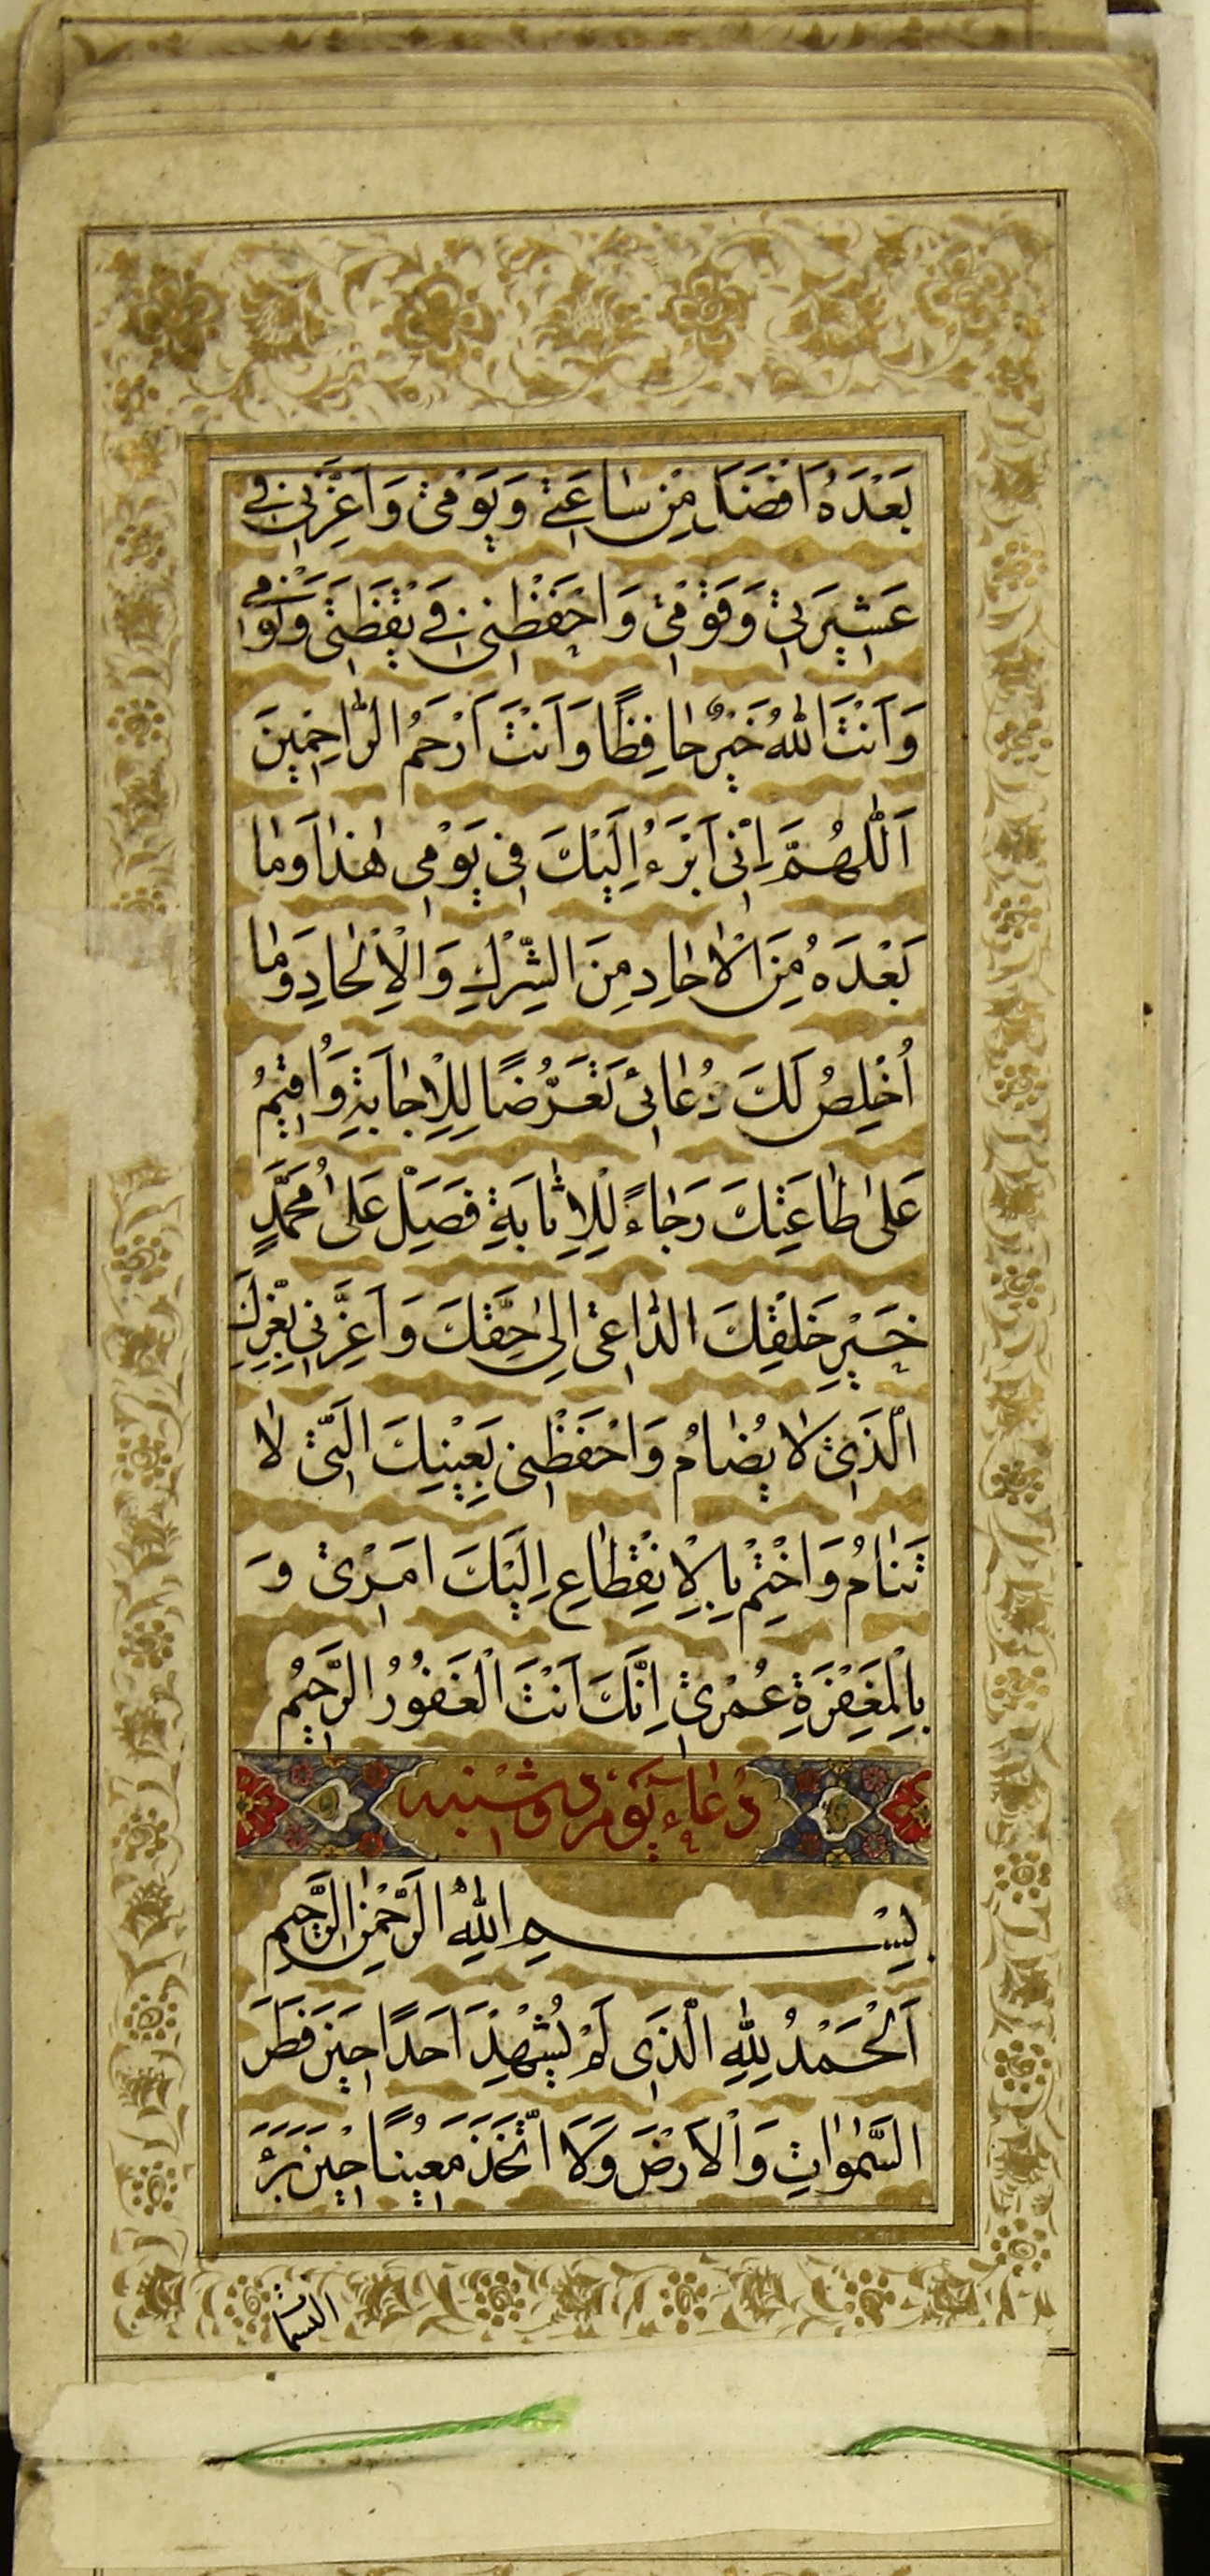 بَعْدَهُ اَفْضَلَ مِنْ سٰاعَتٖی وَ یَوْمٖی وَ اَعِزَّنٖی فٖی
عَشٖیرَتٖی وَ قَوْمٖی وَ احْفَظْنٖی فٖی یَقْظَتٖی وَ نَوْمٖی
وَ اَنْتَ اللّٰهُ خَیْرٌ حٰافِظًا وَ اَنْتَ اَرْحَمُ الرّٰاحِمٖینَ
اَللّٰهُمَّ اِنّٖی اَبْرَءُ اِلَیْكَ فٖی یَوْمٖی هٰذٰا وَمٰا
بَعْدَهُ مِنَ الْاٰحٰادِ مِنَ الشِّرْكِ وَ الْاِلْحٰادِ وَمٰا
اُخْلِصُ لَكَ دُعٰائٖی تَعَرُّضًا لِلْاِجٰابَةِ وَ اُقٖیمُ
عَلٰی طٰاعَتِكَ رَجٰاءً لِلْاِثٰابَةِ فَصَلِّ عَلٰی مُحَمَّدٍ
خَیْرِ خَلْقِكَ الدّٰاعٖی اِلٰی حَقِّكَ وَ اَعِزَّنٖی بِعِزِّكَ
الَّذٖی لٰا یُضٰامُ وَ احْفَظْنٖی بِعَیْنِكَ الَّتٖی لٰا
تَنٰامُ وَ اخْتِمْ بِالْاِنْقِطٰاعِ اِلَیْكَ اَمْرٖی وَ
بِالْمَغْفِرَةِ عُمْرٖی اِنَّكَ اَنْتَ الْغَفُورُ الرَّحٖیمُ
دُعٰاءِ یَوْمِ دوشنبه
بِسْمِ اللّٰهِ الرَّحْمٰنِ الرَّحٖیمِ
اَلْحَمْدُ لِلّٰهِ الَّذٖی لَمْ یُشْهِدْ اَحَدًا حٖینَ فَطَرَ
السَّمٰوٰاتِ وَ الْاَرْضَ وَلَا اتَّخَذَ مُعٖینًا حٖینَ بَرَءَ
النسمات